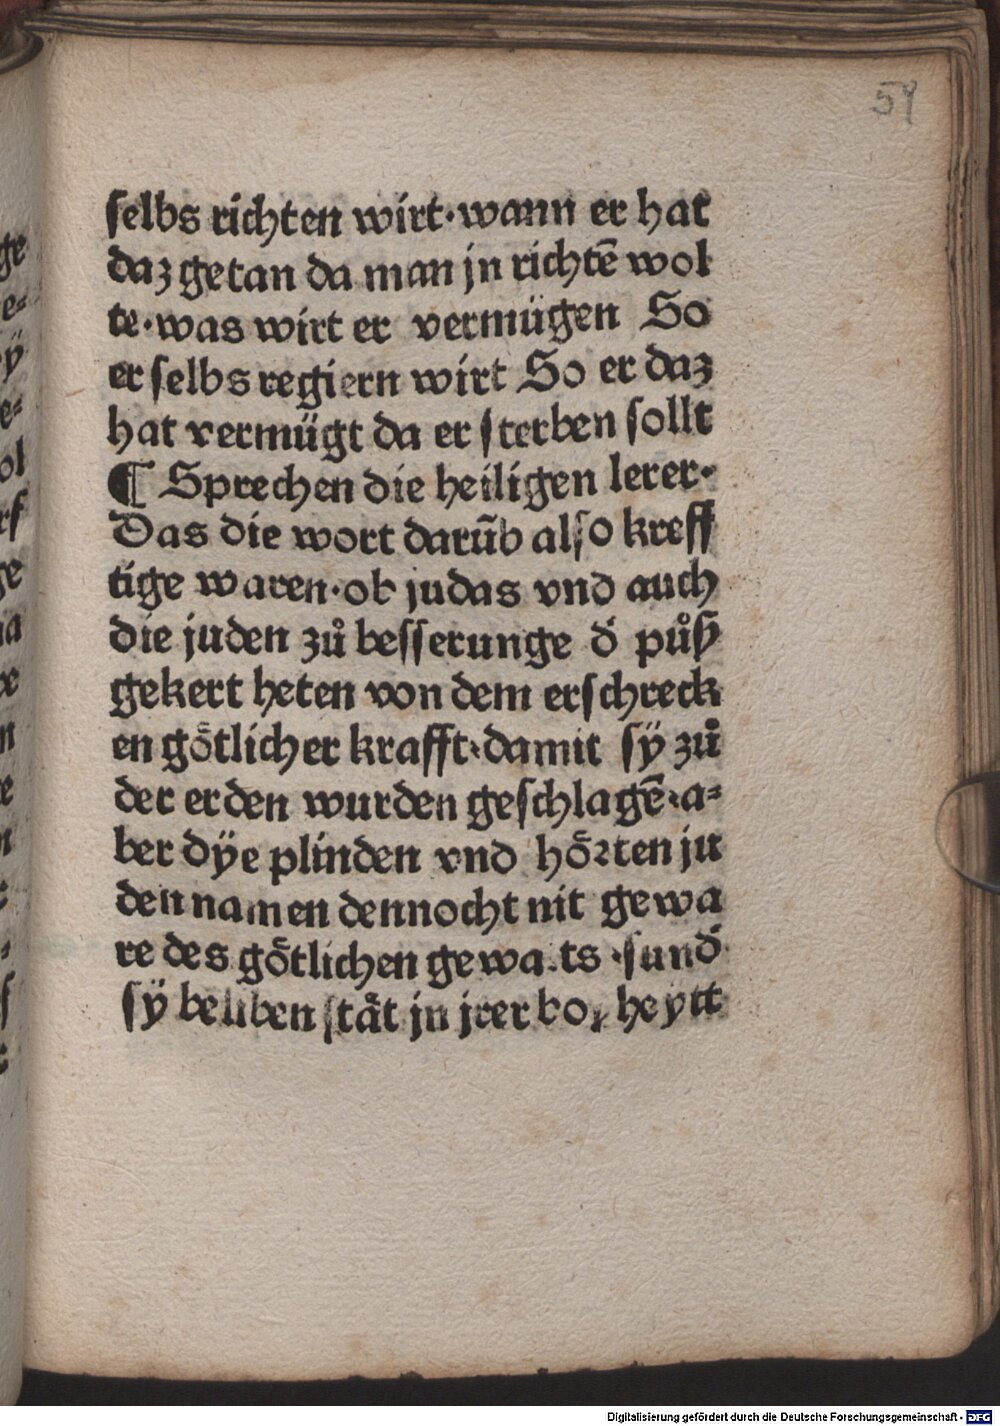 59
selbs richten wirt·wann er hat
daz getan da man jn richtē wol
te·was wirt er vermügen So
er selbs regiern wirt So er daz
hat vermügt da er sterben sollt
¶ Sprechen die heiligen lerer·
Das die wort darūb also kreff
tige waren·ob judas vnd auch
die juden zů besserunge d̄ půß
gekert heten von dem erschreck
en götlicher krafft·damit sÿ zů
der erden wurden geschlagē·a-
ber dÿe plinden vnd hörten ju
den namen dennocht nit gewa
re des götlichen gewa.ts ·sund̄
sÿ beliben stät jn jrer boxheytt
Digitalisierung gefördert durch die Deutsche Forschungsgemeinschaft - DFG